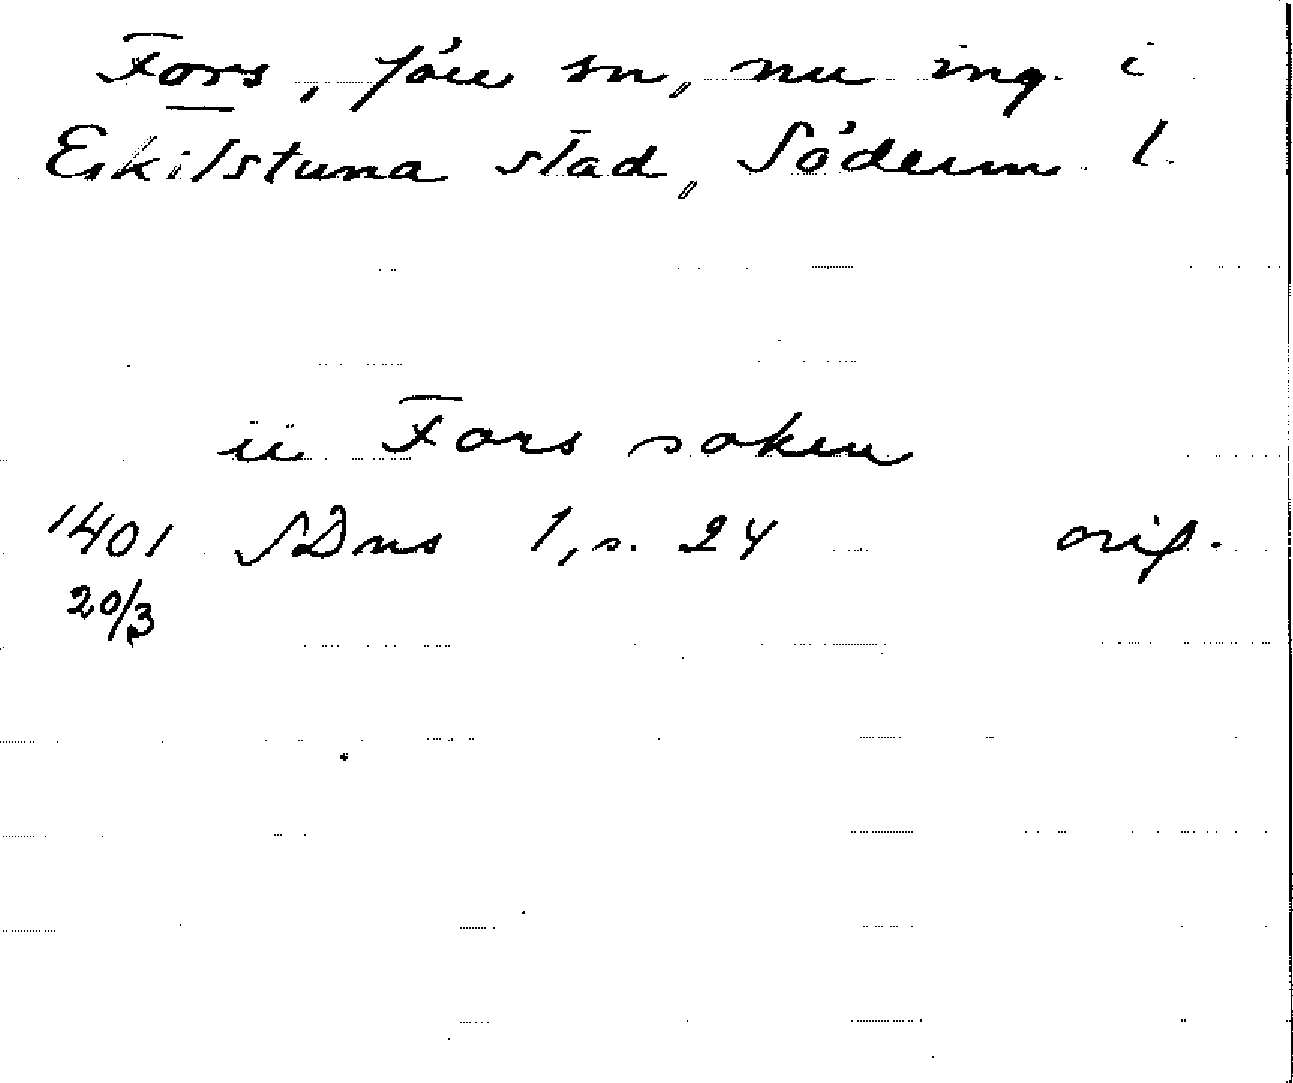 Fors, förr sn, nu ing. i
Eskilstuna stad, Söderm. l.
ii Fors soken
1401 SDns 1, s. 24 orig.
20/3